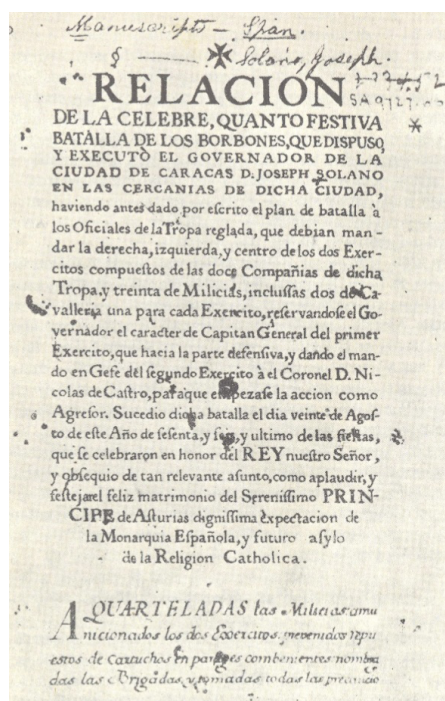 Manuscripts – Span.
§ —— Solano, Joseph.
RELACION
DE LA CELEBRE, QUANTO FESTIVA
BATALLA DE LOS BORBONES, QUE DISPUSO,
Y EXECUTÒ EL GOVERNADOR DE LA
CIUDAD DE CARACAS D. JOSEPH SOLANO
EN LAS CERCANIAS DE DICHA CIUDAD,
haviendo antes dado por escrito el plan de batalla à
los Oficiales de la Tropa reglada, que debian man-
dar la derecha, izquierda, y centro de los dos Exer-
citos compuestos de las doce Compañias de dicha
Tropa, y treinta de Milicias, inclussas dos de Ca-
valleria una para cada Exercito, reservandose el Go-
vernador el caracter de Capitan General del primer
Exercito, que hacia la parte defensiva, y dando el man-
do en Gefe del segundo Exercito à el Coronel D. Ni-
colas de Castro, para que empezase la accion como
Agresor. Sucedio dicha batalla el dia veinte de Agos-
to de este Año de sesenta, y seis, y ultimo de las fiestas,
que se celebraron en honor del REY nuestro Señor,
y obsequio de tan relevante asunto, como aplaudir, y
festejar el feliz matrimonio del Serenissimo PRIN-
CIPE de Asturias dignissima expectacion de
la Monarquia Española, y futuro asylo
de la Religion Catholica.
AQUARTELADAS las Milicias amu
nicionados los dos Exercitos, prevenidos repu
estos de cartuchos en parages combenientes nombra
das las Brigadas, y tomadas todas las precaucio